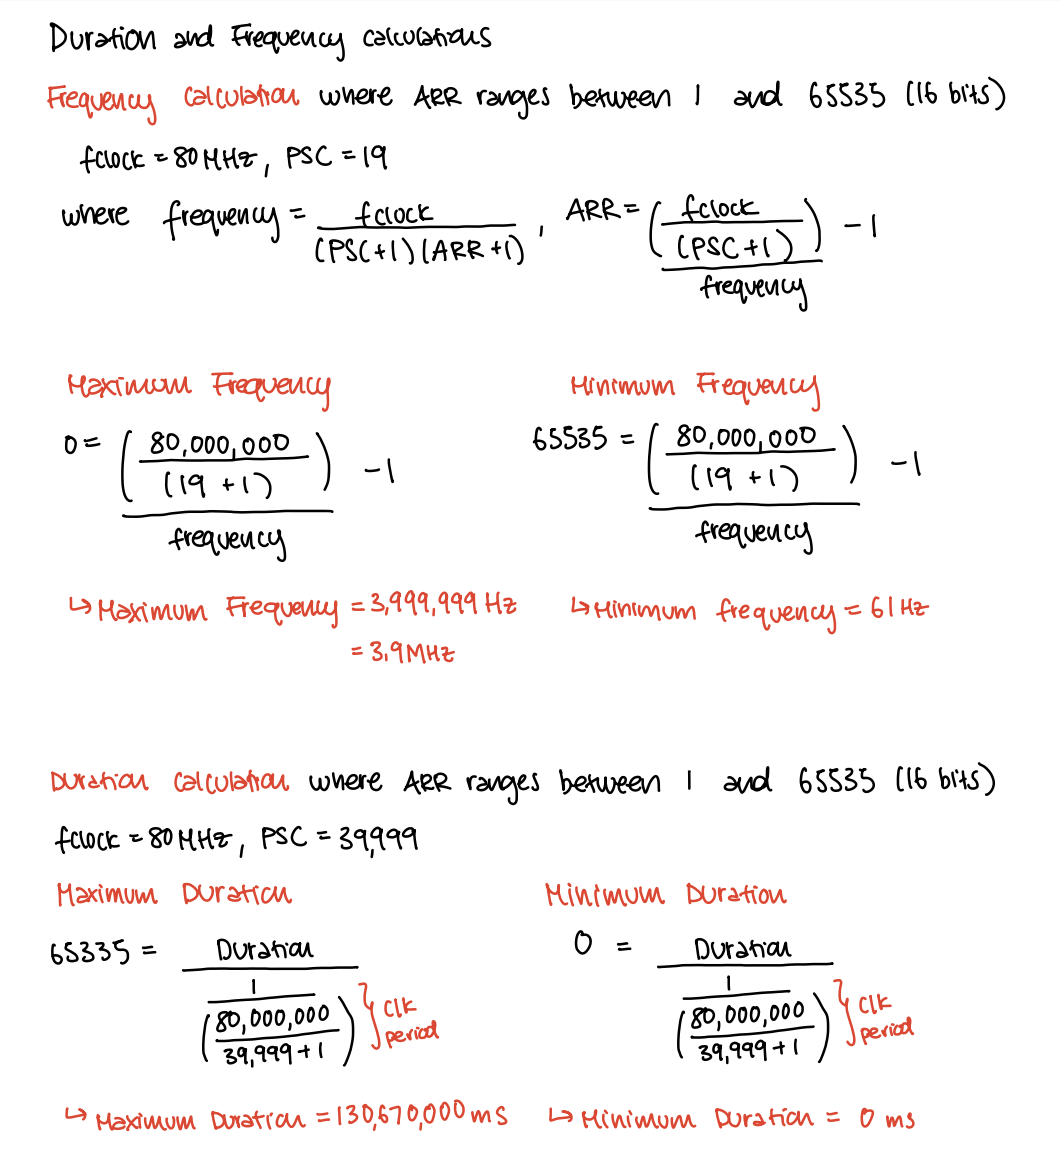 Duration and Frequency calculations
Frequency Calculation where ARR ranges between 1 and 65535 (16 bits)
fclock = 80 MHz, PSC = 19
where frequency = fclock / (PSC+1)(ARR+1) , ARR = (fclock / (PSC+1)) / frequency - 1
Maximum Frequency
0 = (80,000,000 / (19 + 1)) / frequency - 1
↳ Maximum Frequency = 3,999,999 Hz
= 3.9MHz
Minimum Frequency
65535 = (80,000,000 / (19 + 1)) / frequency - 1
↳ Minimum frequency = 61 Hz
Duration Calculation where ARR ranges between 1 and 65535 (16 bits)
fclock = 80 MHz, PSC = 39,999
Maximum Duration
65335 = Duration / (1 / (80,000,000 / 39,999 + 1)) } Clk period
↳ Maximum Duration = 130,670,000 ms
Minimum Duration
0 = Duration / (1 / (80,000,000 / 39,999 + 1)) } Clk period
↳ Minimum Duration = 0 ms